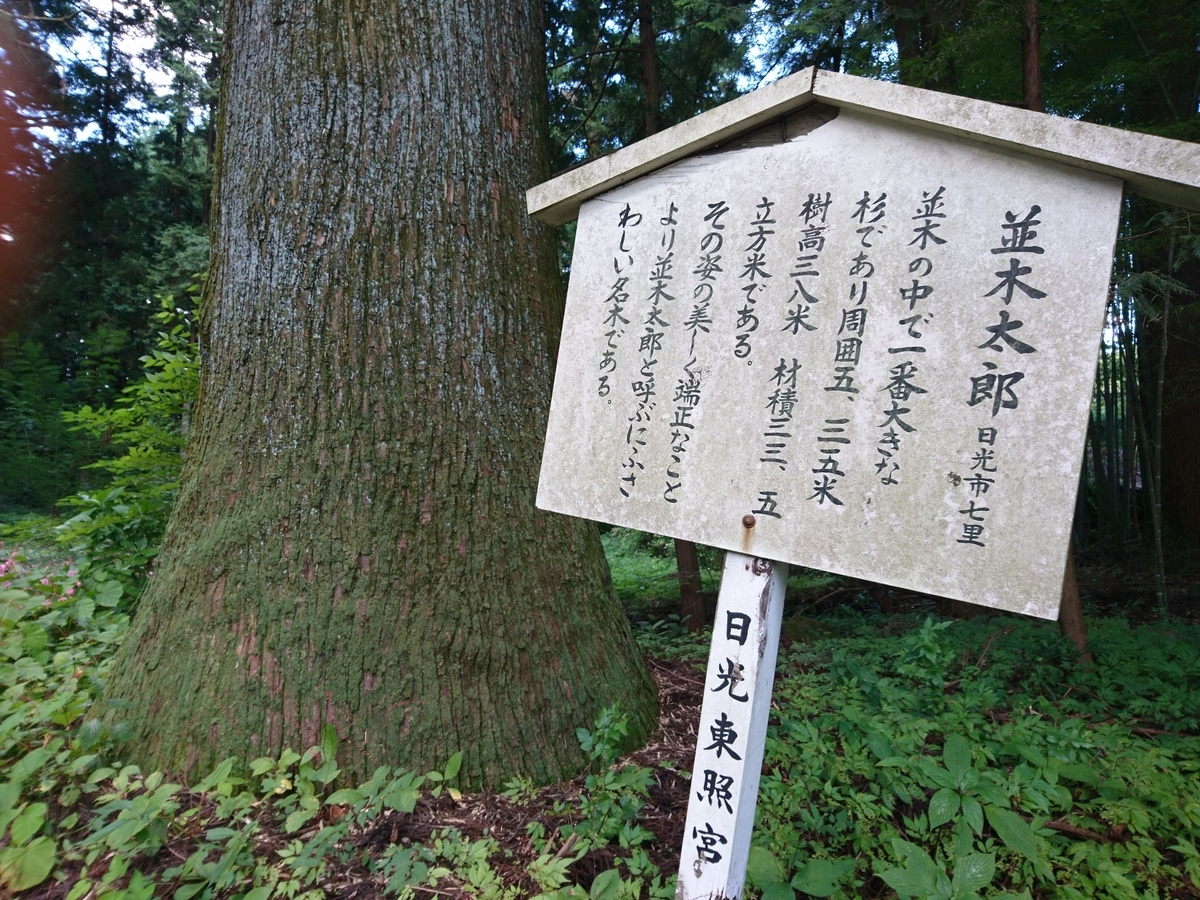 並木太郎 日光市七里
並木の中で一番大きな
杉であり周囲五、三五米
樹高三八米 材積三三、五
立方米である。
その姿の美しく端正なこと
より並木太郎と呼ぶにふさ
わしい名木である。
日光東照宮